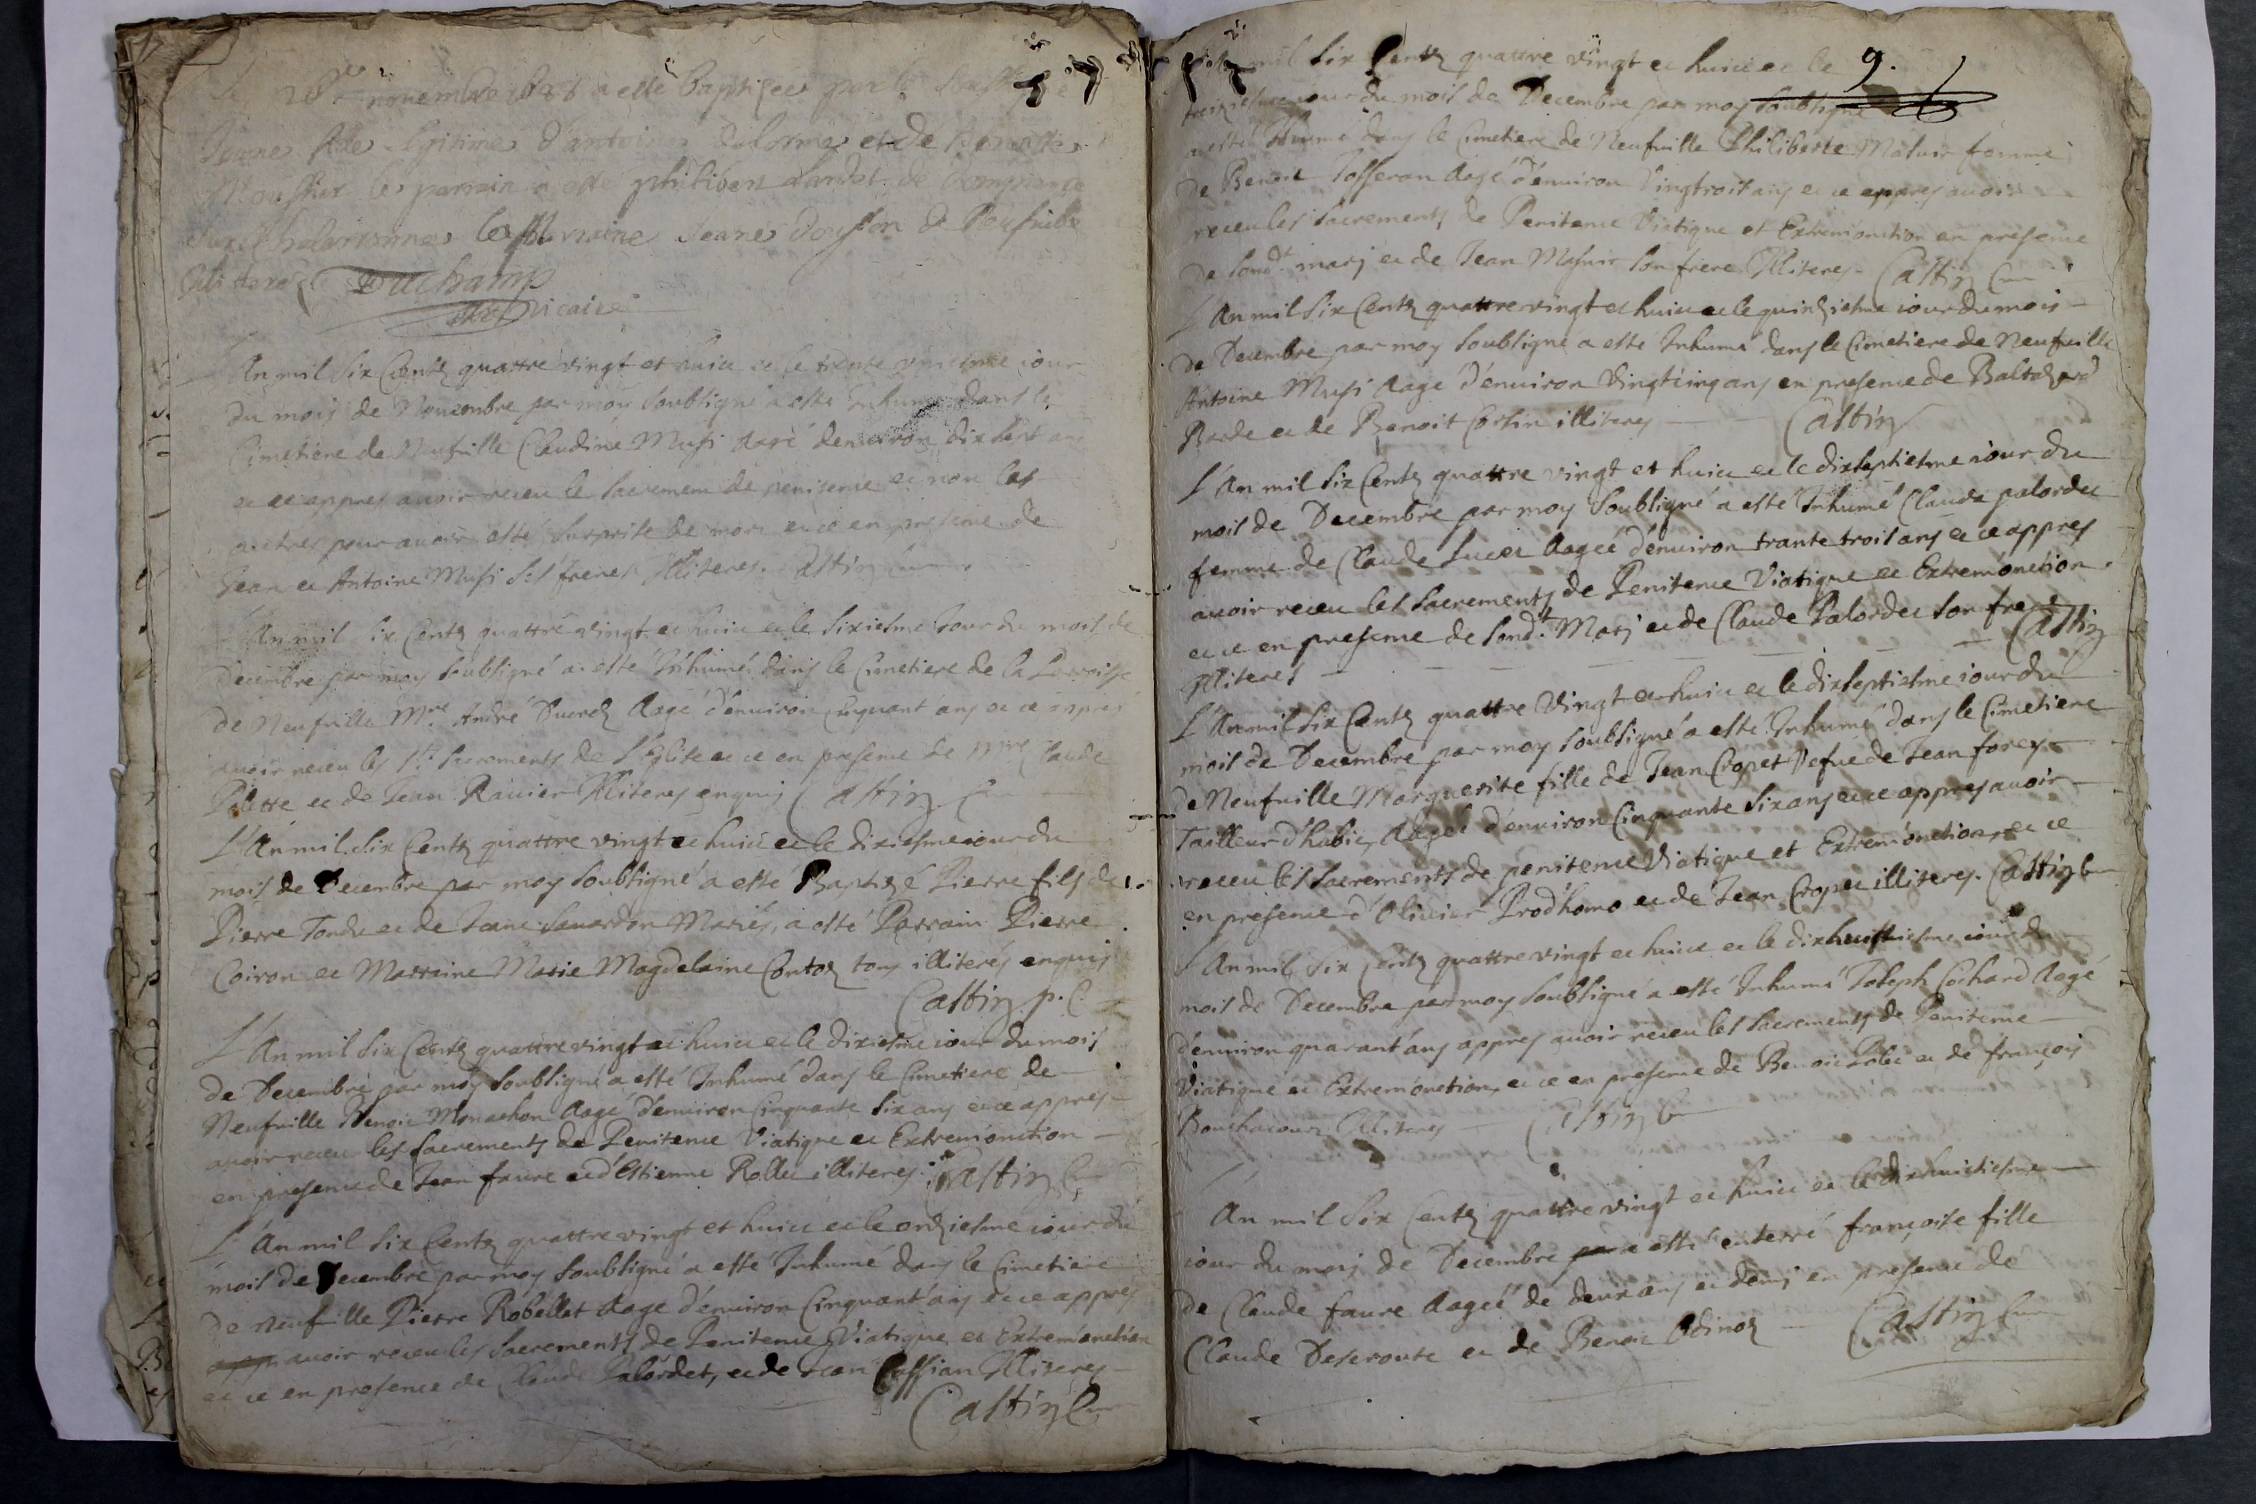 novembre 1688 a esté Baptizée par le
Jeane fille legitime d'antoine delorme et de Benoiste
le parrain a esté philibert
la Marraine Jeane de Neufville
Duchamp
vicaire
L'An mil Six Centz quattre vingt et huict et le trente uniesme iour
du mois de Novembre par moy soubsigné a esté Inhumé dans le
Cimetiere de Neufville Claudine Musi Aagé denviron dix sept ans
et ce appres avoir receu le sacrement de penitence et non les
autres pour avoir esté surprise de mort et ce en presence de
Jean et Antoine Musi Ses freres Illiteres. Castin
L'An mil Six Centz quattre vingt et huict et le Sixiesme Jour du mois de
Decembre par moy soubsigné a esté Inhumé dans le Cimetiere de la Parroisse
de Neufville Mre André Aagé d'environ Cinquant ans et ce appres
avoir receu les Sts Sacrements de l'Eglise et ce en presence de Mre Claude
et de Jean Ravier Illiteres enquis Castin C
L'An mil Six Centz quattre vingt et huict et le dixiesme iour du
mois de Decembre par moy soubsigné a esté Baptizé Pierre fils de
Pierre Tondu et de Jeane Savardon Mariés, a esté Parrain Pierre
Coiron et Marraine Marie Magdelaine Conton tous illiterés enquis
Castin p. C.
L'An mil Six Centz quattre vingt et huict et le dixiesme iour du mois
de Decembre par moy soubsigné a esté Inhumé dans le Cimetiere de
Neufville Benoit Monachon Aagé d'environ Cinquante Six ans et ce appres
avoir receu les Sacrements de Penitence Viatique et Extremonction
en presence de Jean faure et d'Estienne Rollet illiteres. Castin C
L'An mil Six Centz quattre vingt et huict et le onziesme iour du
mois de Decembre par moy soubsigné a esté Inhumé dans le Cimetiere
de Neufville Pierre Robellet Aagé d'environ Cinquant'ans et ce appres
avoir receu les Sacrements de Penitence Viatique et Extremonction
et ce en presence de Claude Palordet, et de Jean Cassian Illiteres
Castin C
9.
mil Six Centz quattre vingt et huict et le
treiziesme iour du mois de Decembre par moy soubsigné
a esté Inhumé dans le Cimetiere de Neufville Philiberte Masuir femme
de Benoit Josseran Aagé d'environ Vingtrois ans et ce appres avoir
receu les Sacrements de Penitence Viatique et Extremonction en presence
de sond.t mary et de Jean Masuir son frere Illiteres Castin C
L'An mil Six Centz quattre vingt et huict et le quinziesme iour du mois
de Decembre par moy soubsigné a esté Inhumé dans le Cimetiere de Neufville
Antoine Musi Aagé d'environ Vingtcinq ans en presence de Baltazard
Barde et de Benoit Corsin illiteres Castin
L'An mil Six Centz quattre vingt et huict et le dixseptiesme iour du
mois de Decembre par moy soubsigné a esté Inhumé Claude palordet
femme de Claude Aageé d'environ trante trois ans et ce appres
avoir receu les Sacrements de Penitence Viatique et Extremonction
et ce en presence de sond.t Mary et de Claude Palordet son frere
Illiteres Castin
L'An mil Six Centz quattre Vingt et huict et le dixseptiesme iour du
mois de Decembre par moy soubsigné a esté Inhumé dans le Cimetiere
de Neufville Marguerite fille de Jean Cropet Vefue de Jean forey
Tailleur d'habit, Aageé d'environ Cinquante Six ans et ce appres avoir
receu les Sacrements de penitence Viatique et Extremonction, et ce
en presence d'Olivier Prodhome et de Jean Cropet illiteres. Castin C
L'An mil Six Centz quattre vingt et huict et le dixhuittiesme iour du
mois de Decembre par moy soubsigné a esté Inhumé Joseph Cochard Aagé
d'environ quarant'ans appres avoir receu les Sacrements de Penitence
Viatique et Extremonction, et ce en presence de Benoit et de françois
Bouchacourt Illiteres Castin C
L'An mil Six Centz quattre vingt et huict et le dixhuictiesme
iour du mois de Decembre a esté enterré françoise fille
de Claude faure Aageé de deux ans et demj en presence de
Claude Deseroute et de Benoit Castin C